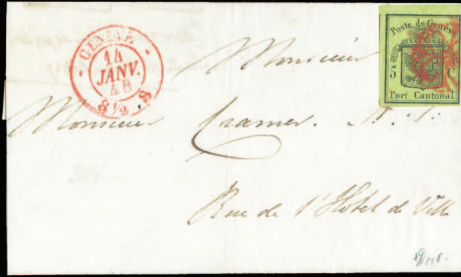 GENÈVE
14
JANV.
48
8½ S
Poste de Genève
5 C
Port Cantonal
Monsieur
Monsieur Cramer
Rue de l'Hôtel de Ville